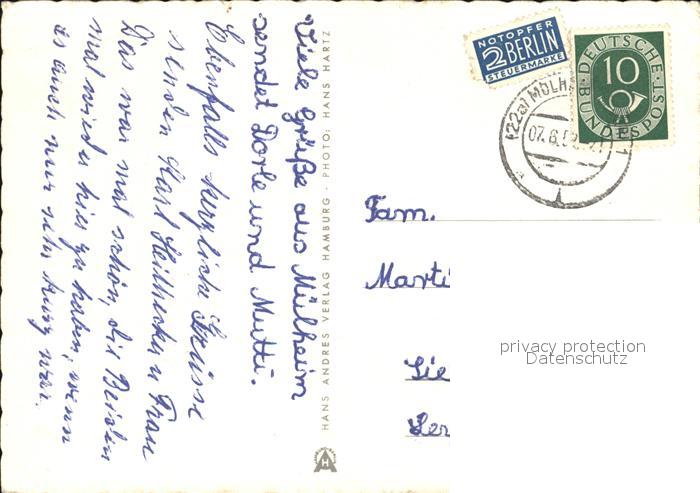 Viele Grüße aus Mülheim
sendet Dorle und Mutti.
Ebenfalls herzliche Grüsse
senden Karl u Frau
Das war mal schön, die Beiden
mal wieder hier zu haben, wenn
es auch nur sehr kurz war.
HANS ANDRES VERLAG HAMBURG · PHOTO: HANS HARTZ
NOTOPFER
2 BERLIN
STEUERMARKE
DEUTSCHE
10
BUNDESPOST
(22a) MÜLH
07.6.5
Fam.
Marti
Sie
privacy protection
Datenschutz